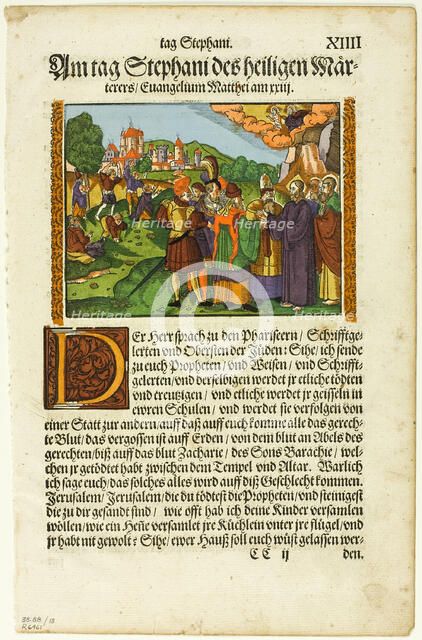 tag Stephani. XIIII
Am tag Stephani des heiligen Mär-
terers/ Euangelium Matthei am xxiij.
DEr Herr sprach zu den Phariseern/ Schrifftge-
lerten vnd Obersten der Jüden: Sihe/ ich sende
zu euch Propheten/ vnd Weisen/ vnd Schrifft
gelerten/ vnd derselbigen werdet jr etliche tödten
vnd creutzigen / vnd etliche werdet jr geisseln in
ewren Schulen / vnd werdet sie verfolgen von
einer Statt zur andern/ auff daß auff euch komme alle das gerech-
te Blut/ das vergossen ist auff Erden/ von dem blut an Abels des
gerechten/ biß auff das blut Zacharie/ des Sons Barachie/ wel-
chen jr getödtet habt zwischen dem Tempel vnd Altar. Warlich
ich sage euch/ das solches alles wird auff diß Geschlecht kommen.
Jerusalem/ Jerusalem/ die du tödtest die Propheten/ vnd steinigest
die zu dir gesandt sind/ wie offt hab ich deine Kinder versamlen
wöllen/ wie ein Heñe versamlet jre Küchlein vnter jre flügel/ vnd
jr habt nit gewolt? Sihe/ ewer Hauß soll euch wüst gelassen wer-
CC ij den.
38.88/13
R6461
Heritage
Heritage
Heritage
Heritage
Heritage
Heritage